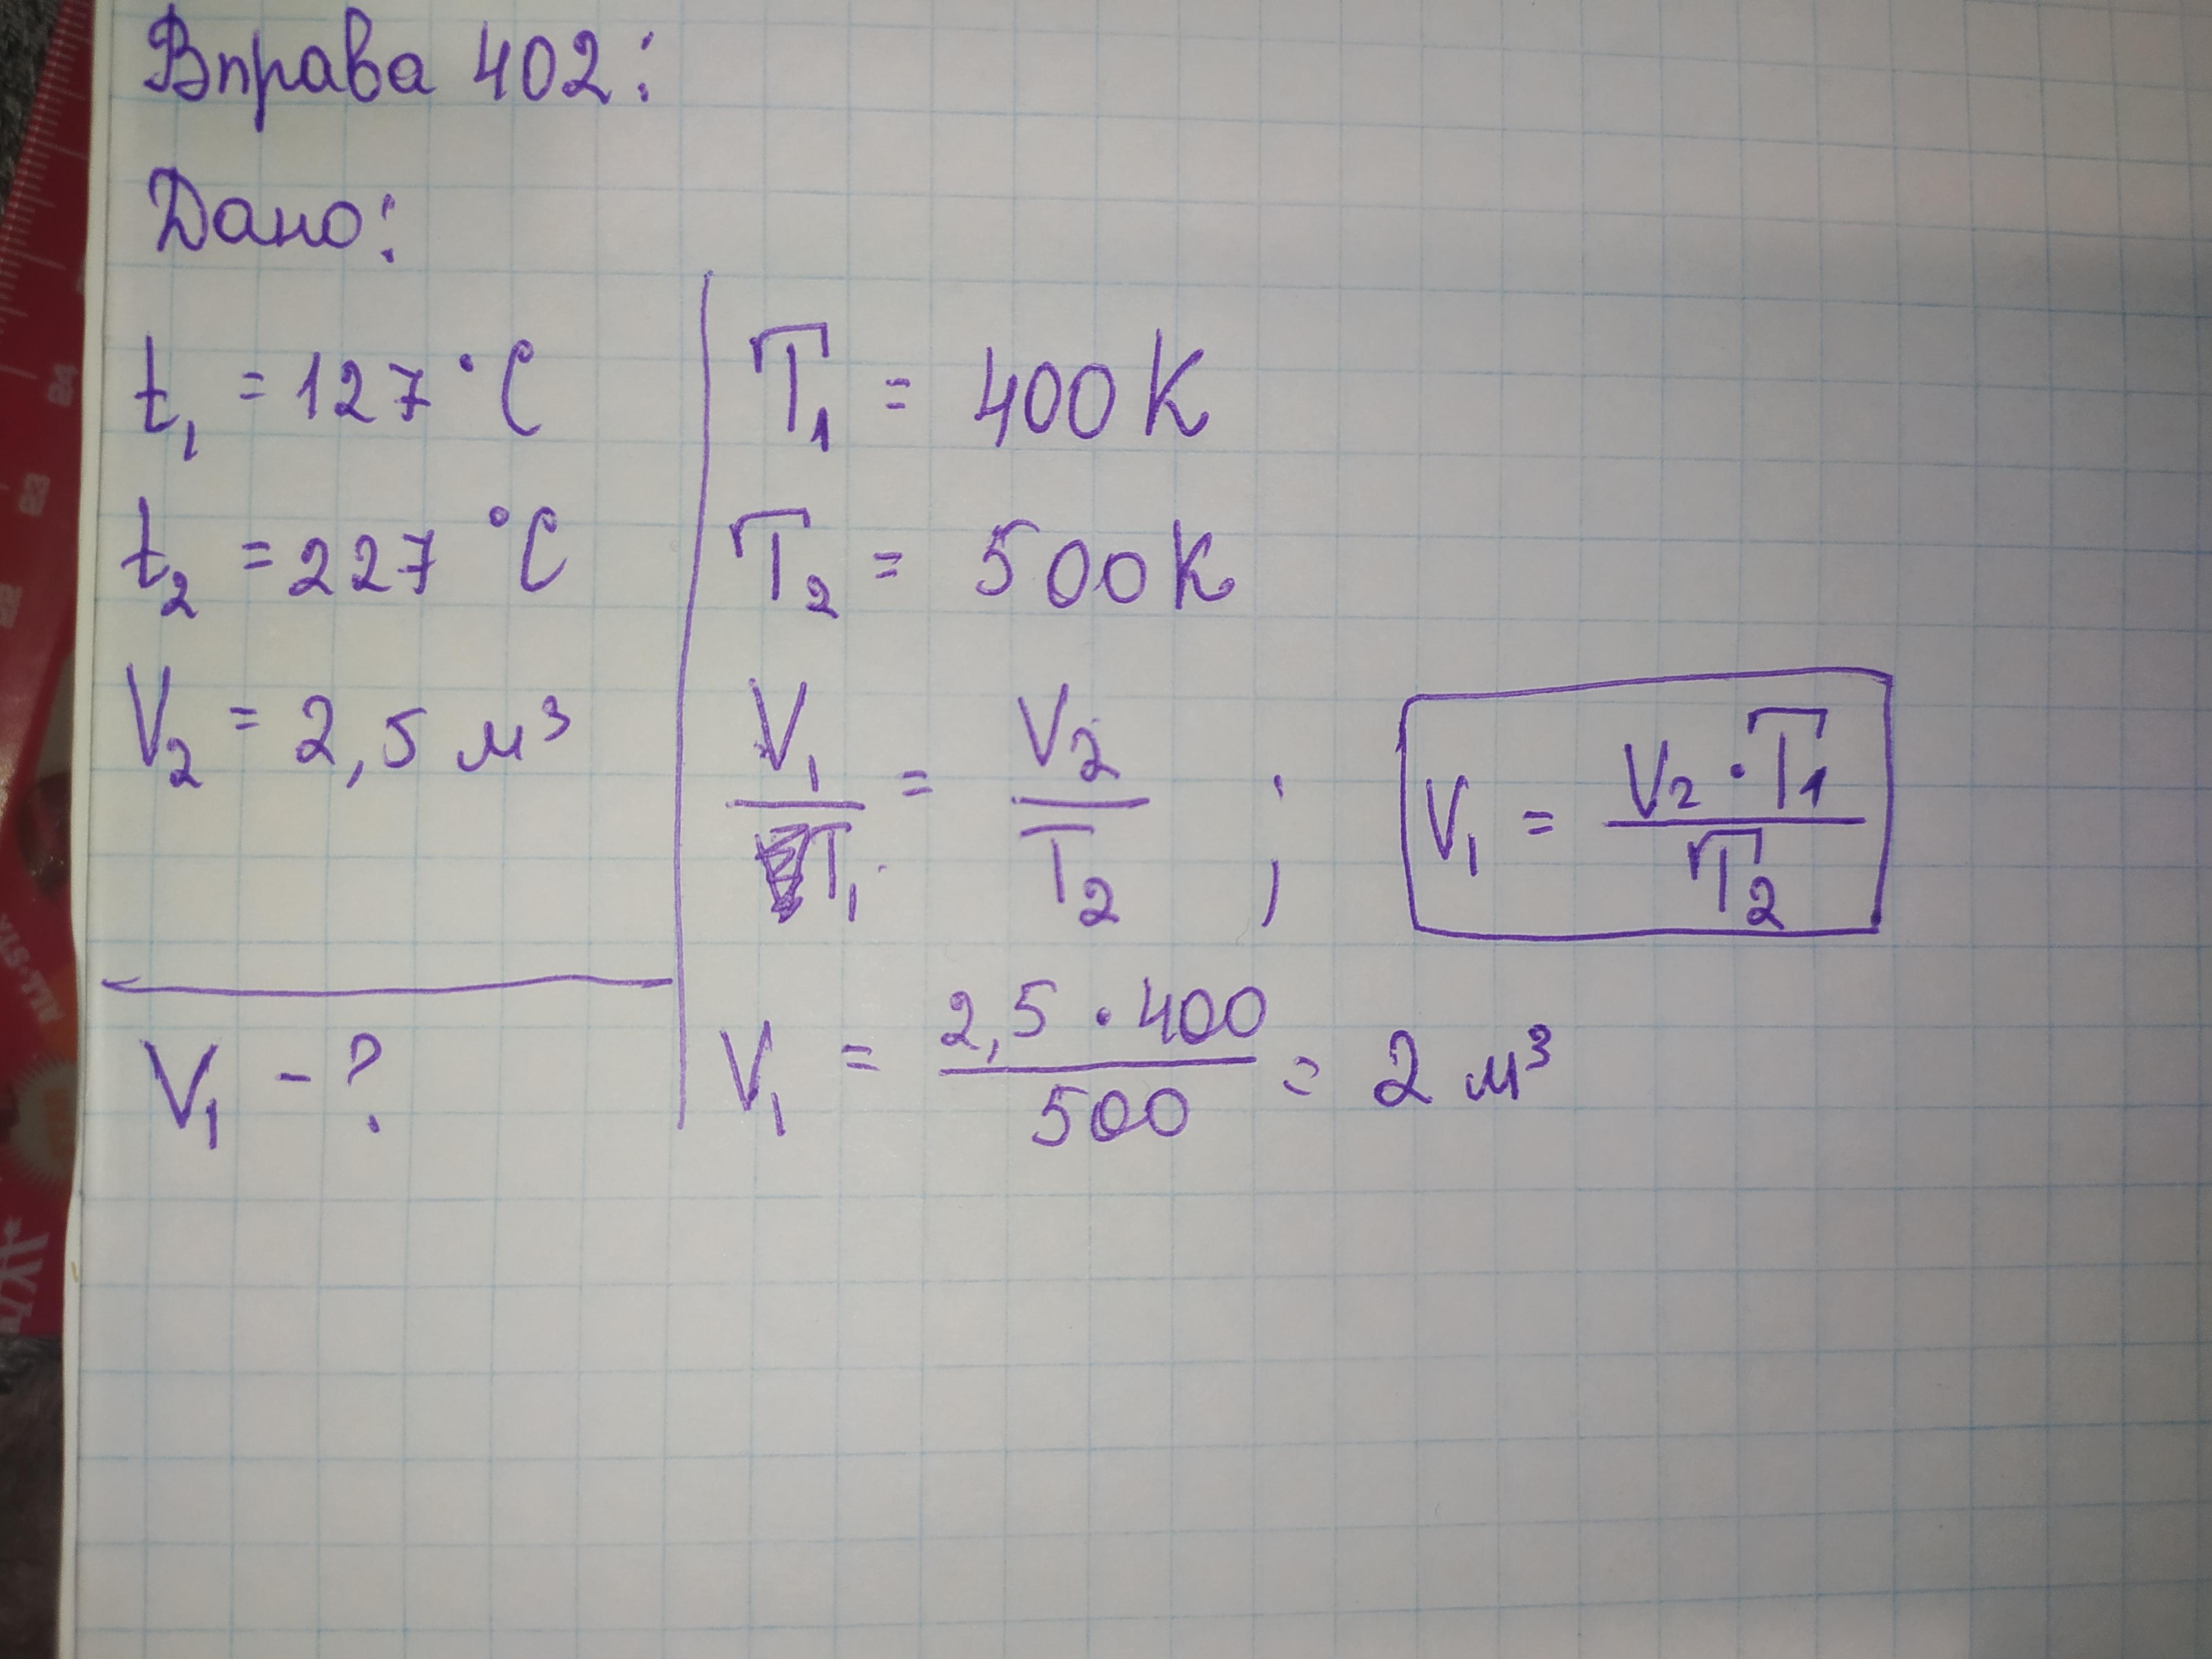 Вправа 402:
Дано:
t₁ = 127 °C
t₂ = 227 °C
V₂ = 2,5 м³
V₁ - ?
T₁ = 400 К
T₂ = 500 К
V₁/T₁ = V₂/T₂ ;
V₁ = V₂ · T₁/T₂
V₁ = 2,5 · 400/500 = 2 м³
24
23